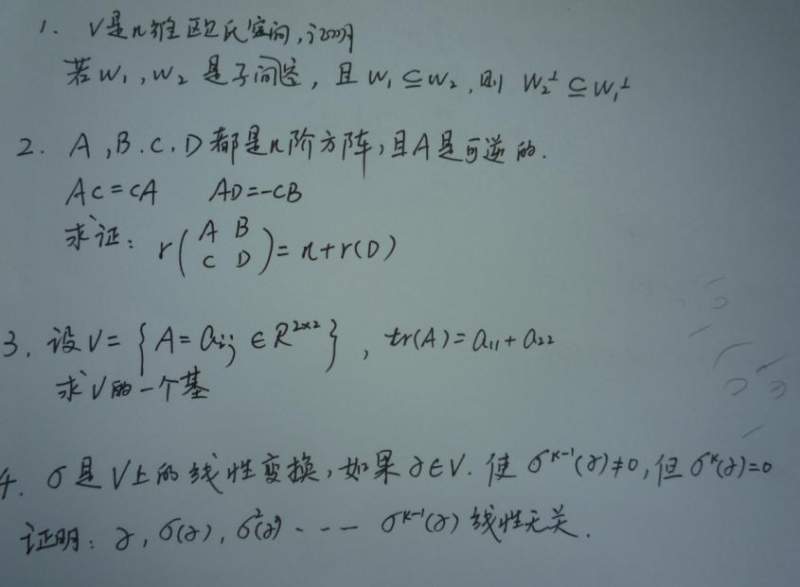 1. V是n维欧氏空间,证明
若W₁,W₂是子间空,且W₁⊆W₂,则 W₂^⊥⊆W₁^⊥
2. A,B.C,D都是n阶方阵,且A是可逆的.
AC=CA AD=-CB
求证: r(A B
C D)=n+r(D)
3. 设V={A=aᵢⱼ∈R^{2×2}}, tr(A)=a₁₁+a₂₂
求V的一个基
4. σ是V上的线性变换,如果γ∈V.使σ^{k-1}(γ)≠0,但σ^k(γ)=0
证明: γ,σ(γ),σ²(γ)----σ^{k-1}(γ)线性无关.